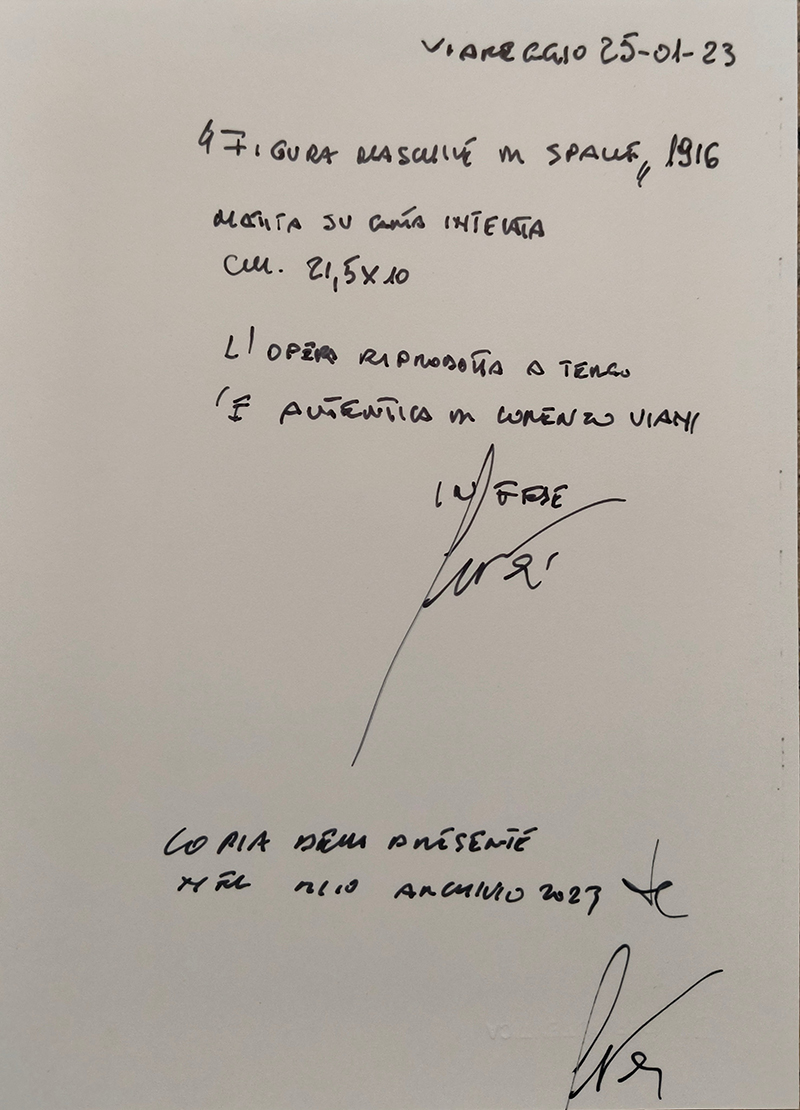 VIAREGGIO 25-01-23
"FIGURA MASCHILE DI SPALLE" 1916
MATITA SU CARTA INTELATA
CM. 21,5X10
L'OPERA RIPRODOTTA A TERGO
'E AUTENTICA DI LORENZO VIANI
IN FEDE
COPIA DELLA PRESENTE
NEL MIO ARCHIVIO 2023